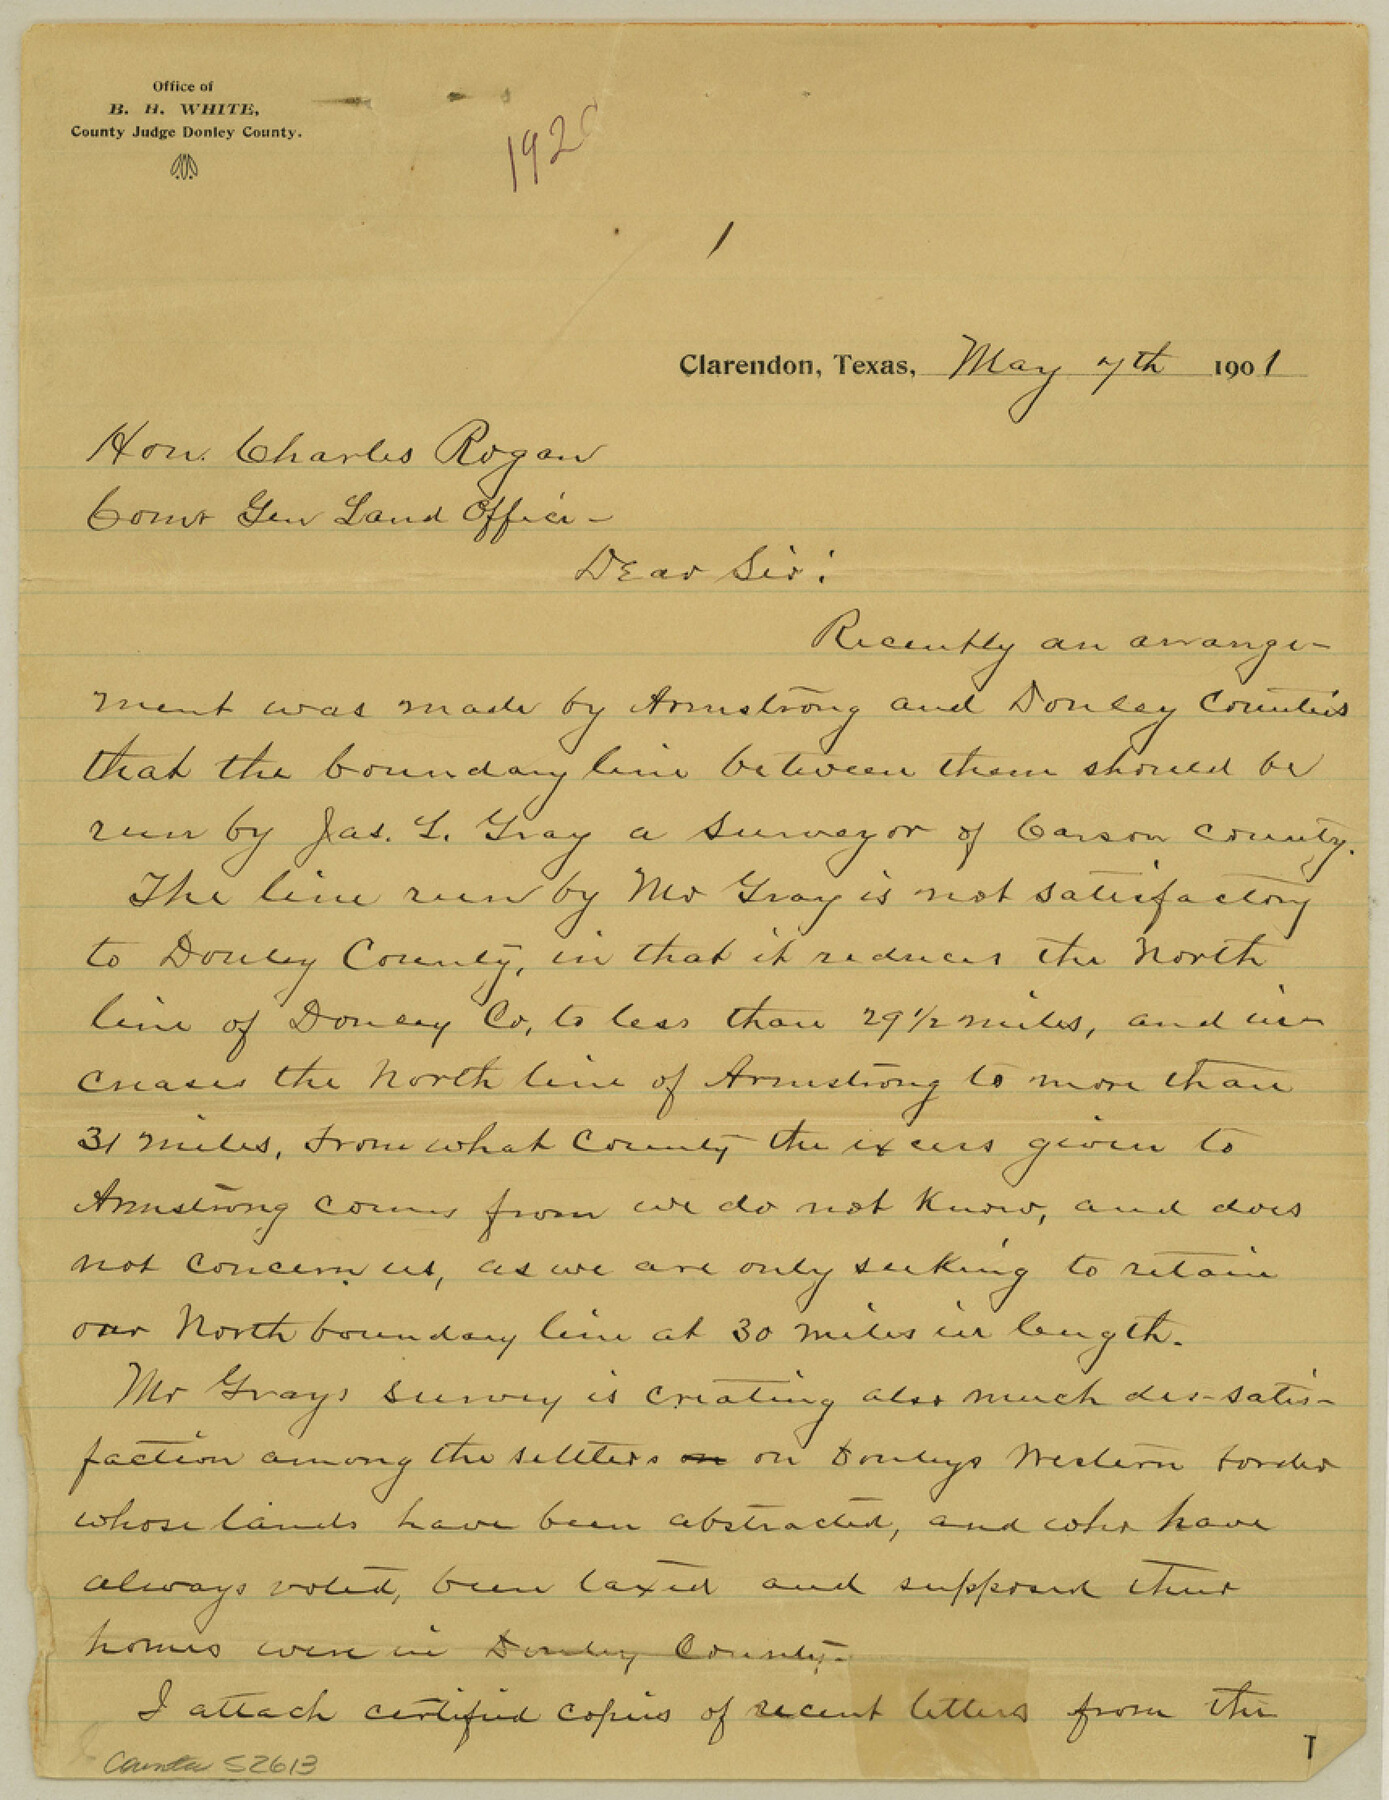 Office of
B. H. WHITE,
County Judge Donley County.
192
1
Clarendon, Texas, May 7th 1901
Hon. Charles Rogan
Comr Gen Land Office -
Dear Sir:
Recently an arrange-
ment was made by Armstrong and Donley Counties
that the boundary line between them should be
run by Jas. L. Gray a surveyor of Carson county.
The line run by Mr Gray is not satisfactory
to Donley County, in that it reduces the North
line of Donley Co, to less than 29 1/2 miles, and in-
creases the North line of Armstrong to more than
31 miles, From what County the excess given to
Armstrong comes from we do not know, and does
not concern us, as we are only seeking to retain
our North boundary line at 30 miles in length.
Mr Grays survey is creating also much dis-satis-
faction among the settlers on on Donleys Western border
whose lands have been abstracted, and who have
always voted, been taxed and supposed their
homes were in Donley County.
I attach certified copies of recent letters from the
Counter 52613
T